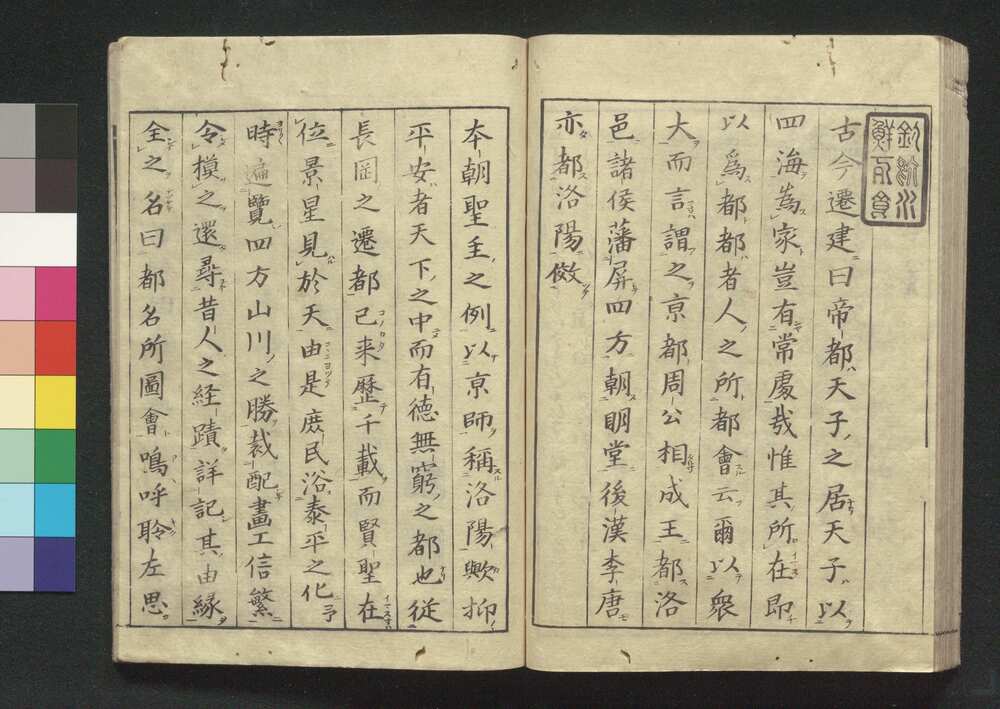 古今遷建曰帝都天子之居天子以
四海為家豈有常處哉惟其所在即
以為都都者人之所都會云爾以衆
大而言謂之亰都周公相成王都洛
邑諸侯藩屏四方朝明堂後漢李唐
亦都洛陽傚
本朝聖主之例以亰師稱洛陽歟抑
平安者天下之中而有德無窮之都也従
長岡之遷都已来歷千載而賢聖在
位景星見於天由是庶民浴泰平之化予
時遍覽四方山川之勝裁配畫工信繁
令摸之還尋昔人之経蹟詳記其由緣
全之名曰都名所圖會嗚呼聆左思